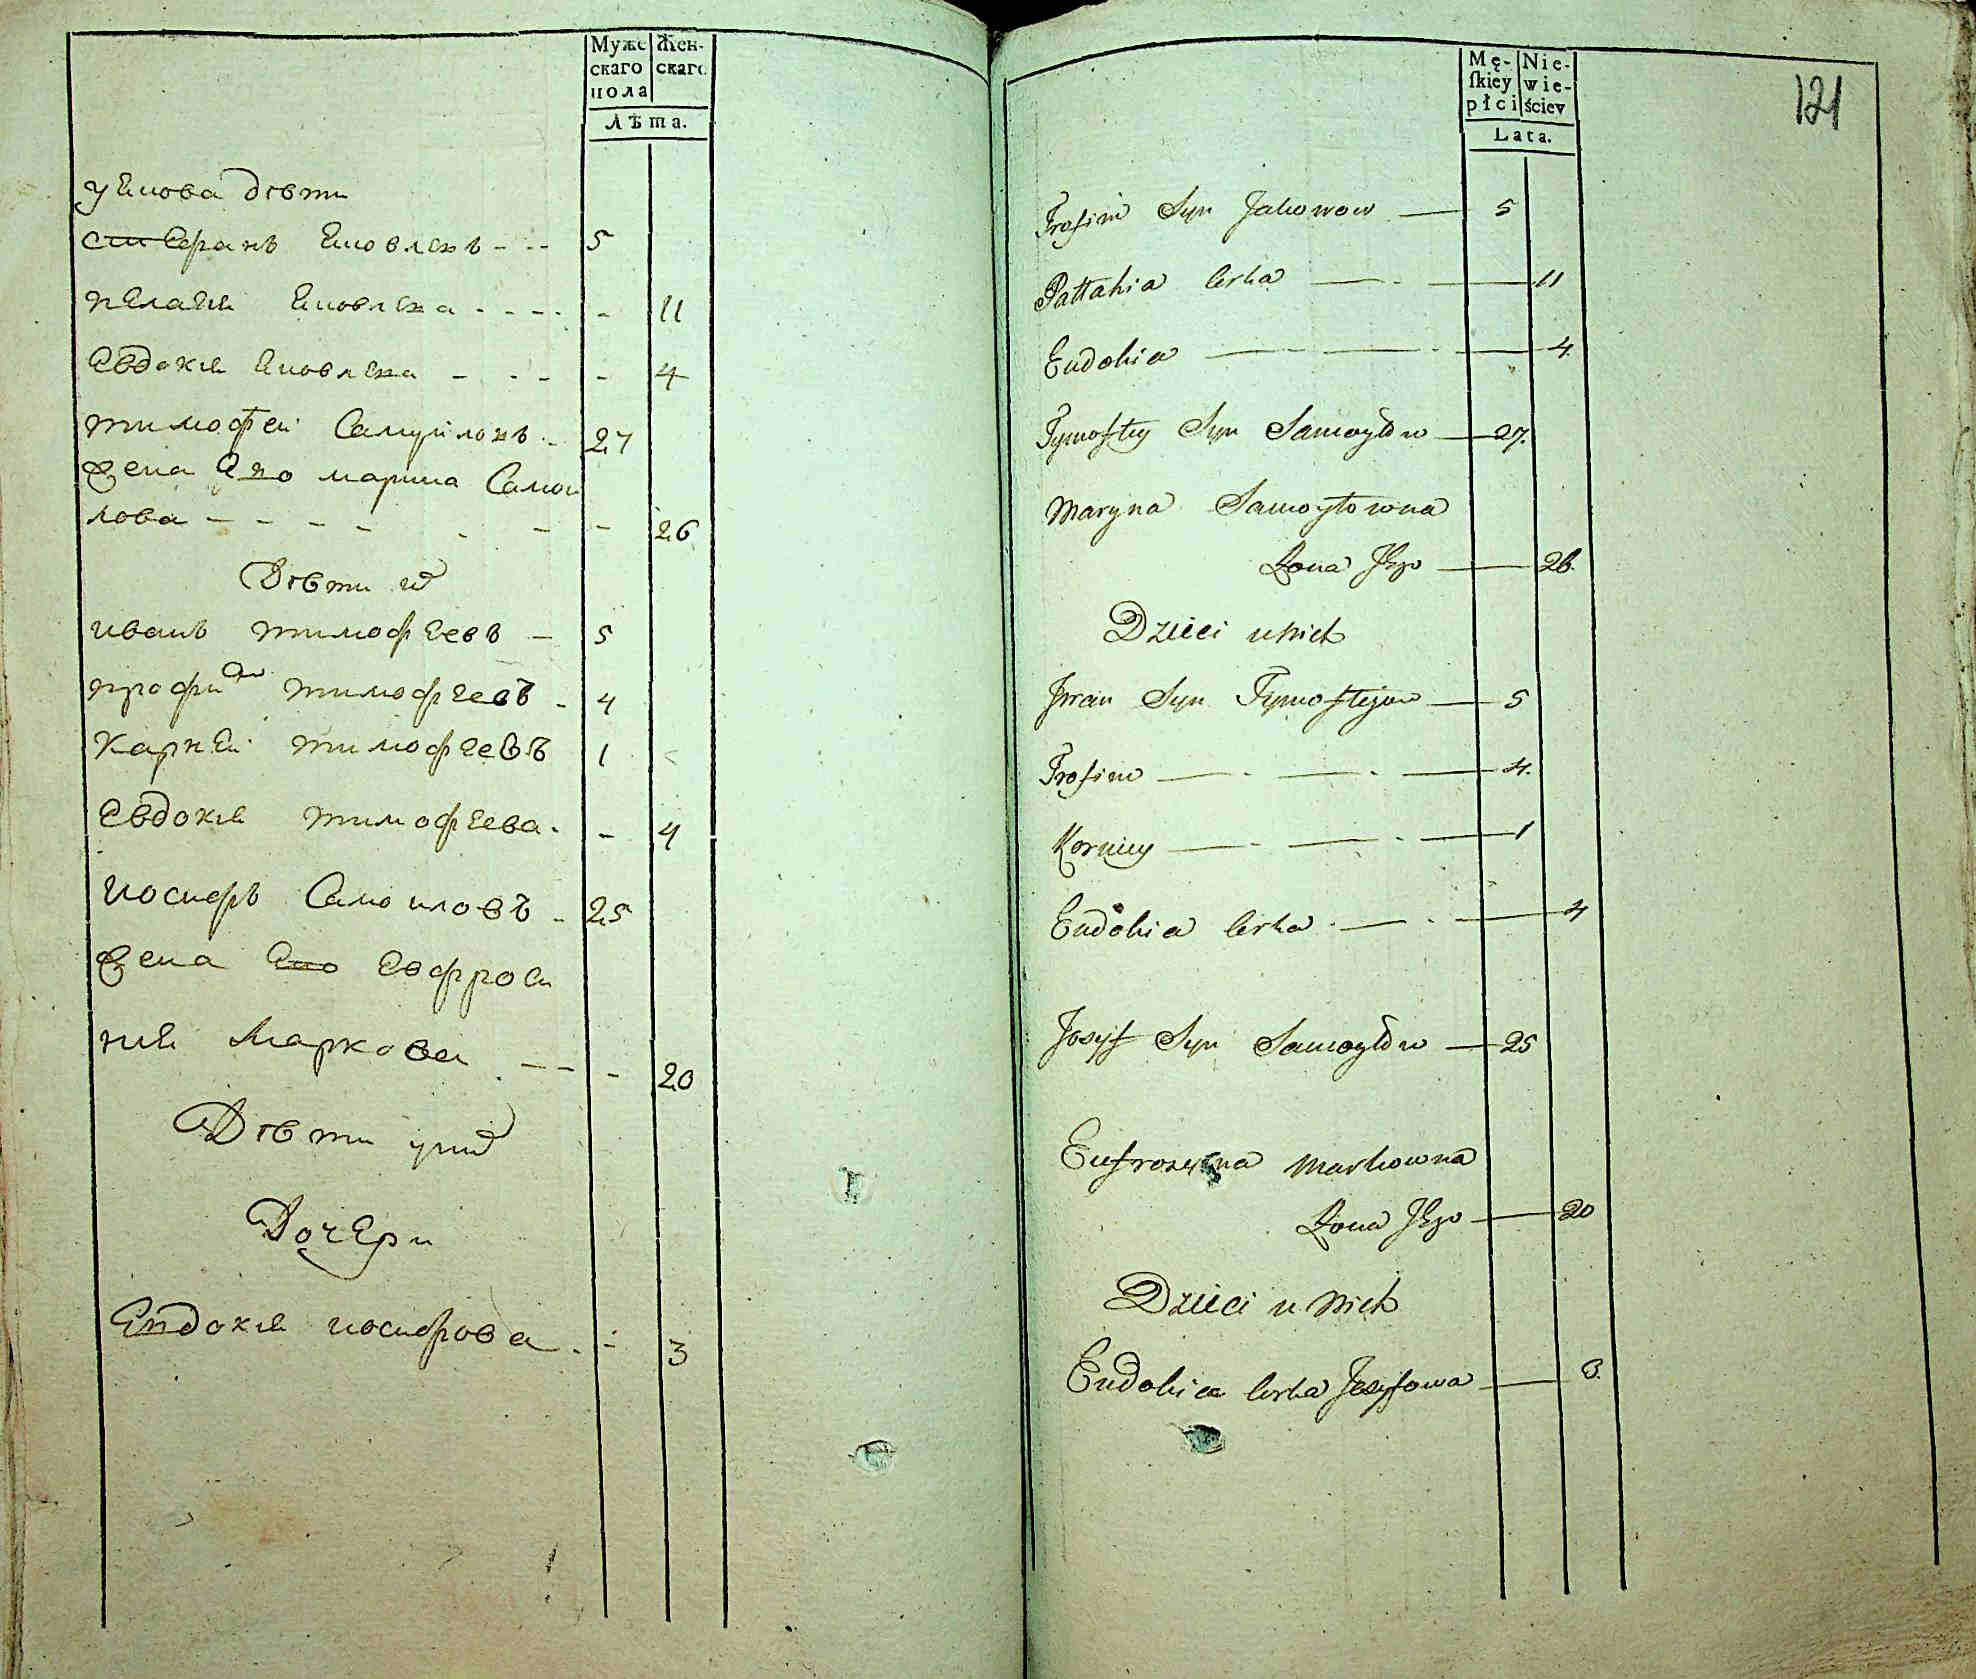 Муже Жен-
скаго скаго
пола
Лѣта.
у якова дѣти
степанъ яковлевъ - - - 5
пелагея яковлева - - - - - 11
Евдокия яковлева - - - - 4
тимофеи Самуиловъ - 27
жена Его марина Самои
лова - - - - - - - 26
Дѣти их
иванъ тимофеевъ - 5
трофим тимофеевъ - 4
карней тимофеевъ 1
Евдокия тимофеева - - 4
иосифъ Самоиловъ - 25
жена Его Евфроси
ния Маркова - - - - 20
Дѣти у них
Дочери
Евдокия иосифова - - 3
Mę- Nie-
ſkiey wie-
płci ściey
Lata.
121
Trofim Syn Jakowow — 5
Pattahia Corka — - — 11
Eudokia — - — - — 4
Tymofiey Syn Samoyłow — 27.
Maryna Samoyłowna
Żona Jego — 26.
Dzieci u Nich
Jwan Syn Tymofiejow — 5
Trofim — - — - — 4.
Korniey — - — - — 1
Eudokia Corka - — - — 4
Josyf Syn Samoyłow — 25
Eufrozyna Markowna
Żona Jego — 20
Dzieci u Nich
Eudokia Corka Josyfowa — 3.